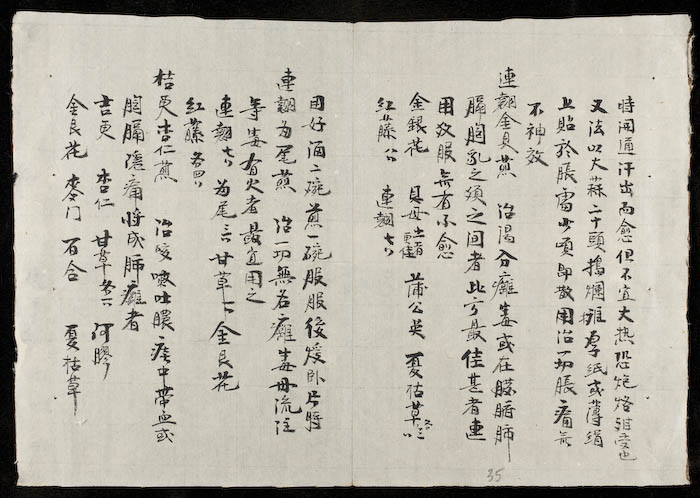 時開通汗出而愈但不宜大热恐炮烙难受也
又法以大蒜二十頭搗爛攤厚紙或薄絹
上貼於脹處少頃即散用治一切脹痛無
不神效
連翹金貝煎 治陽分癰毒或在臟腑肺
膈胸乳之须之间者此方最佳甚者連
用数服無有不愈
金銀花 貝母土者更佳 蒲公英 夏枯草各三
紅藤八 連翹七
用好酒二碗煎一碗服服後煖卧片時
連翹为尾煎 治一切無名癰毒毋流注
等毒有火者最宜用之
連翹七 为尾三 甘草一 金艮花
紅藤各四
桔更杏仁煎 治咳嗽吐膿痰中帶血或
胸膈隱痛將成肺癰者
吉更 杏仁 甘草各一 阿膠
金艮花 麥门 百合 夏枯草
35